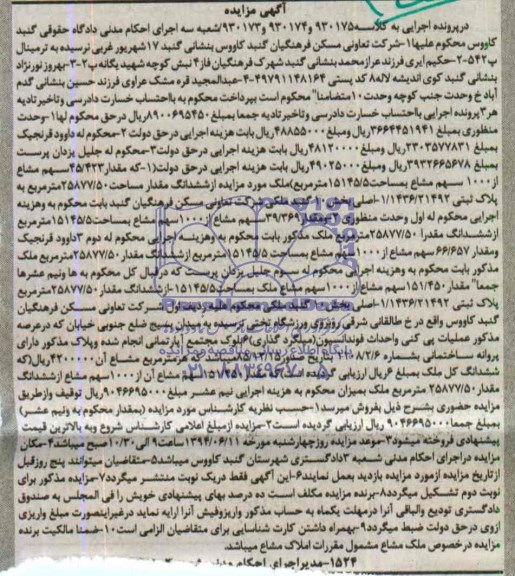 آگهی مزایده
درپرونده اجرایی به کلاسه۹۳۰۱۷۵ و۹۳۰۱۷۴ و۹۳۰۱۷۳/شعبه سه اجرای احکام مدنی دادگاه حقوقی گنبد
کاووس محکوم علیها۱-شرکت تعاونی مسکن فرهنگیان گنبد کاووس بنشانی گنبد ۱۷شهریور غربی نرسیده به ترمینال
پ۵۴۲-۲-حکیم ایری فرزند عرازمحمد بنشانی گنبد شهرک فرهنگیان فاز۴ نبش کوچه شهید یگانه پ۲-۳-بهروز نورنژاد
بنشانی گنبد کوی اندیشه لاله۸ کد پستی ۴۹۷۹۱۱۴۸۱۶۴-۴-عبدالمجید قره مشک عراوی فرزند حسین بنشانی گدم
آباد خ وحدت جنب کوچه وحدت۱۰متضامنا" محکوم است بپرداخت محکوم به بااحتساب خسارت دادرسی وتاخیر تادیه
هر۳پرونده اجرایی بااحتساب خسارت دادرسی وتاخیر تادیه جمعا بمبلغ ۸۹۰۰۶۹۵۴۵۰ریال درحق محکوم لها۱-وحدت
منظوری بمبلغ ۳۶۶۴۴۵۱۹۴۱ ریال ومبلغ ۴۸۸۵۵۰۰۰ریال بابت هزینه اجرایی درحق دولت ۲-محکوم له داوود قرنجیک
بمبلغ ۲۳۰۳۵۷۷۸۳۱ریال ومبلغ ۴۸۱۲۰۰۰۰ریال بابت هزینه اجرایی درحق دولت۳-محکوم له جلیل یزدان پرست
بمبلغ ۳۹۳۲۶۶۵۶۷۸ ریال ومبلغ۴۹۰۲۵۰۰۰ریال بابت هزینه اجرایی درحق دولت(۱-که مقدار۴۵/۴۲۳سهم مشاع
از۱۰۰۰ سهم مشاع بمساحت ۱۵۱۴۵/۵مترمربع)ملک مورد مزایده ازششدانگ مقدار مساحت۲۵۸۷۷/۵۰مترمربع به
پلاک ثبتی ۱/۱۴۳۶/۲۱۴۹۲-اصلی بخش ۱۰ گنبد ملکی شرکت تعاونی مسکن فرهنگیان گنبد بابت محکوم به وهزینه
اجرایی محکوم له اول وحدت منظوری ۲-ومقدار۳۹/۳۶۹سهم مشاع از۱۰۰۰سهم مشاع بمساحت۱۵۱۴۵/۵مترمربع
ازششدانگ مقدرا ۲۵۸۷۷/۵۰مترمربع ملک مذکور بابت محکوم به وهزینه اجرایی محکوم له دوم ۳داوود قرنجیک
ومقدار ۶۶/۶۵۷ سهم مشاع از۱۰۰۰سهم مشاع بمساحت ۱۵۱۴۵/۵مترمربع ازششدانگ مقدار۲۵۸۷۷/۵۰مترمربع ملک
مذکور بابت محکوم به وهزینه اجرایی محکوم له سوم جلیل یزدان پرست که درقبال کل محکوم به ها ونیم عشرها
جمعا" مقدار ۱۵۱/۴۵۰سهم مشاع از۱۰۰۰سهم مشاع ملک بمساحت ۱۵۱۴۵/۵-ازششدانگ مقدار۲۵۸۷۷/۵۰مترمربع
پلاک ثبتی ۱/۱۴۳۶/۲۱۴۹۲-اصلی بخش۱۰گنبد ملکی محکوم علیه ردیف اول شرکت تعاونی مسکن فرهنگیان
گنبد کاووس واقع در خ طالقانی شرقی روبروی ورزشگاه تختی نرسیده به میدان بسیج ضلع جنوبی خیابان که درعرصه
مذکور عملیات پی کنی واحداث فونداسیون(میلگرد گذاری)۶بلوک مجتمع آپارتمانی انجام شده وپلاک مذکور دارای
پروانه ساختمانی بشماره
ششدانگ کل ملک بمبلغ
مقدار ۲۵۸۷۷/۵۰ مترمربع ملک بمیزان محکوم به هزینه اجرایی نیم عشر مبلغ ۹۰۴۶۶۹۵۰۰۰ریال توقیف وازطریق
مزایده حضوری بشرح ذیل بفروش میرسد۱-حسب نظریه کارشناس مورد مزایده (بمقدار محکوم به ونیم عشر)
بمبلغ جمعا۹۰۴۶۶۹۵۰۰۰ ریال ارزیابی گردیده است۲-مزایده ازمبلغ اعلامی کارشناس شروع وبه بالاترین قیمت
پیشنهادی فروخته میشود۳-موعد مزایده روزچهارشنبه مورخه ۱۳۹۴/۰۶/۱۱ساعت۹ الی ۱۰/۳۰صبح میباشد۴-مکان
مزایده دراجرای احکام مدنی شعبه ۳دادگستری شهرستان گنبد کاووس میباشد۵-متقاضیان میتوانند پنج روزقبل
ازتاریخ مزایده ازمورد مزایده بازدید بعمل نمایند۶-این آگهی فقط دریک نوبت منتشر میگردد۷-مزایده مذکور برای
نوبت دوم تشکیل میگردد۸-برنده مزایده مکلف است ده درصد بهای پیشنهادی خویش را فی المجلس به صندوق
دادگستری تودیع والباقی آنرا درمهلت یکماه به حساب مذکور واریزوفیش آنرا ارایه نماید درغیراینصورت مبلغ واریزی
ازوی درحق دولت ضبط میگردد۹-بهمراه داشتن کارت شناسایی برای متقاضیان الزامی است۱۰-ضمنا مالکیت برنده
مزایده درخصوص ملک مشاع مشمول مقررات املاک مشاع میباشد.
۱۵۲۴-مدیراجرای احکام مدنی